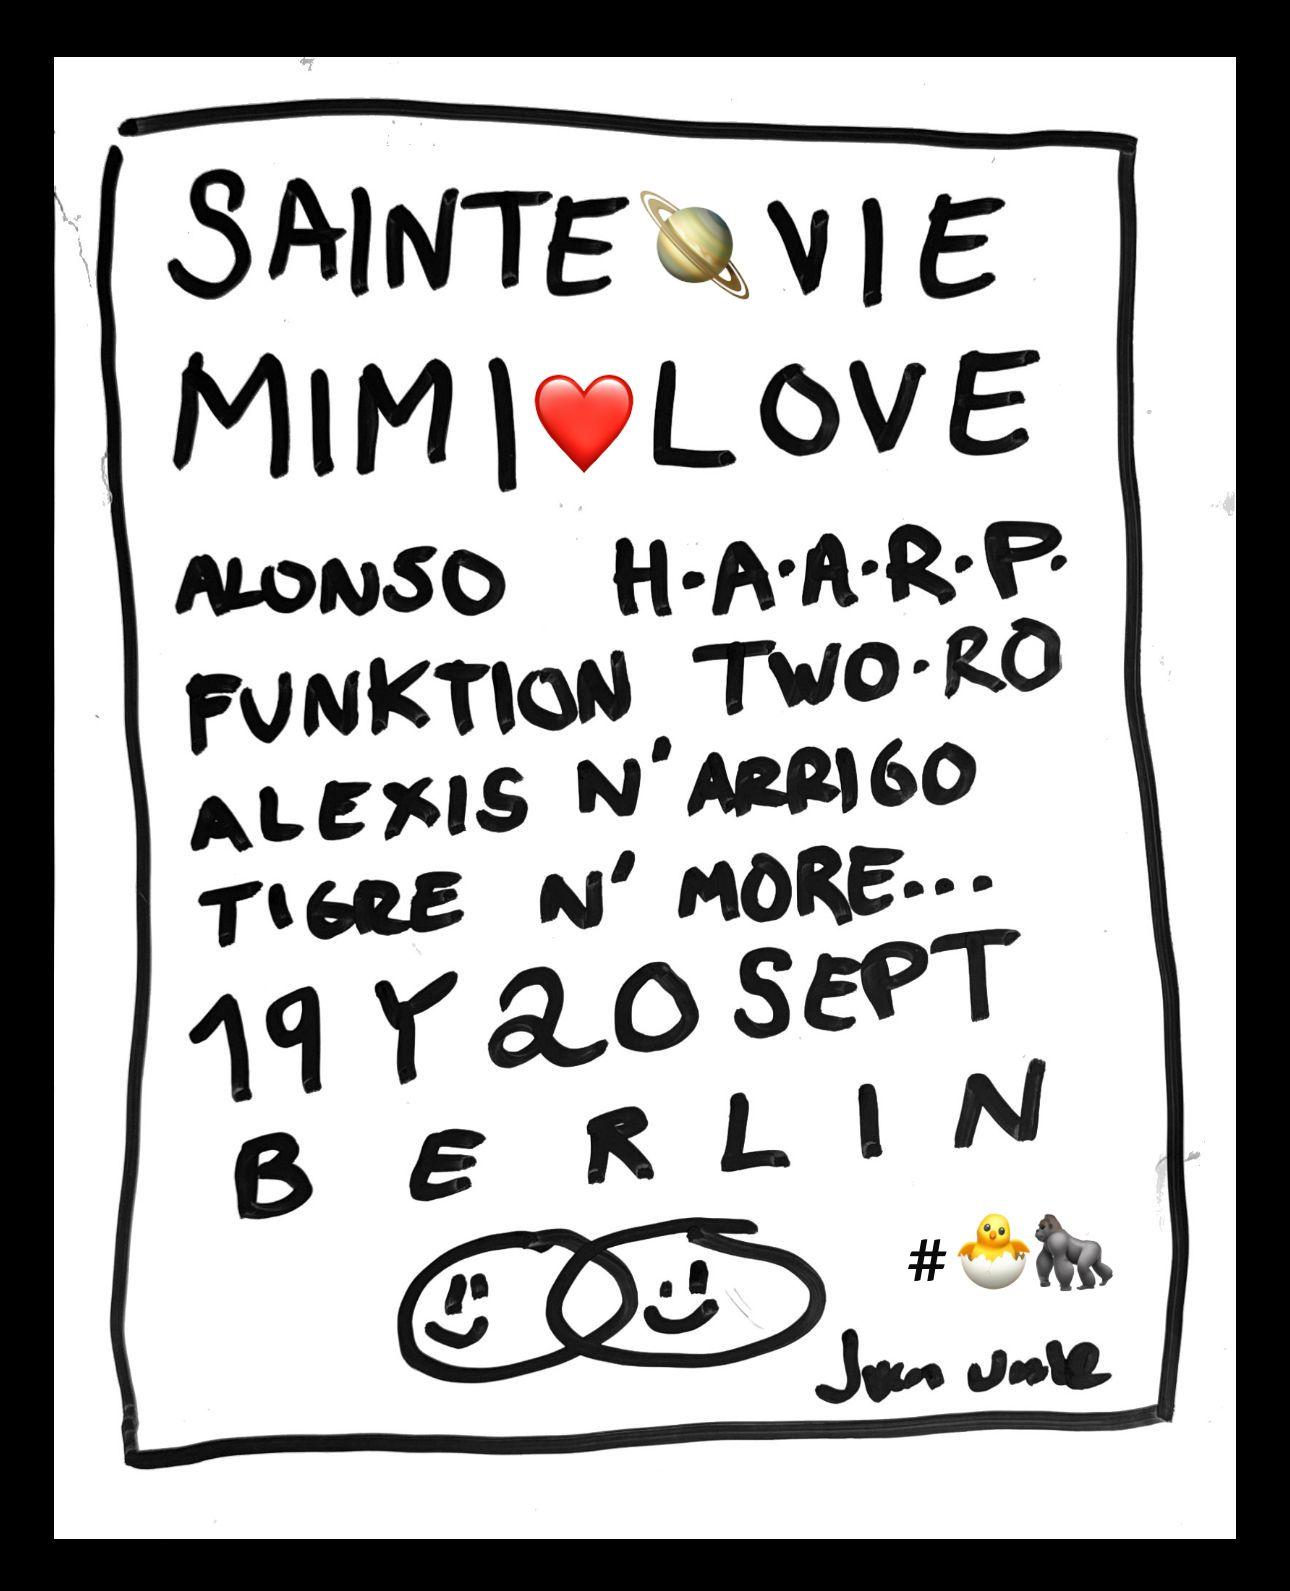 SAINTE🪐VIE
MIMI❤️LOVE
ALONSO H·A·A·R·P·
FUNKTION TWO·RO
ALEXIS N'ARRIGO
TIGRE N' MORE...
19 Y 20 SEPT
BERLIN
#🐣🦍
Juan